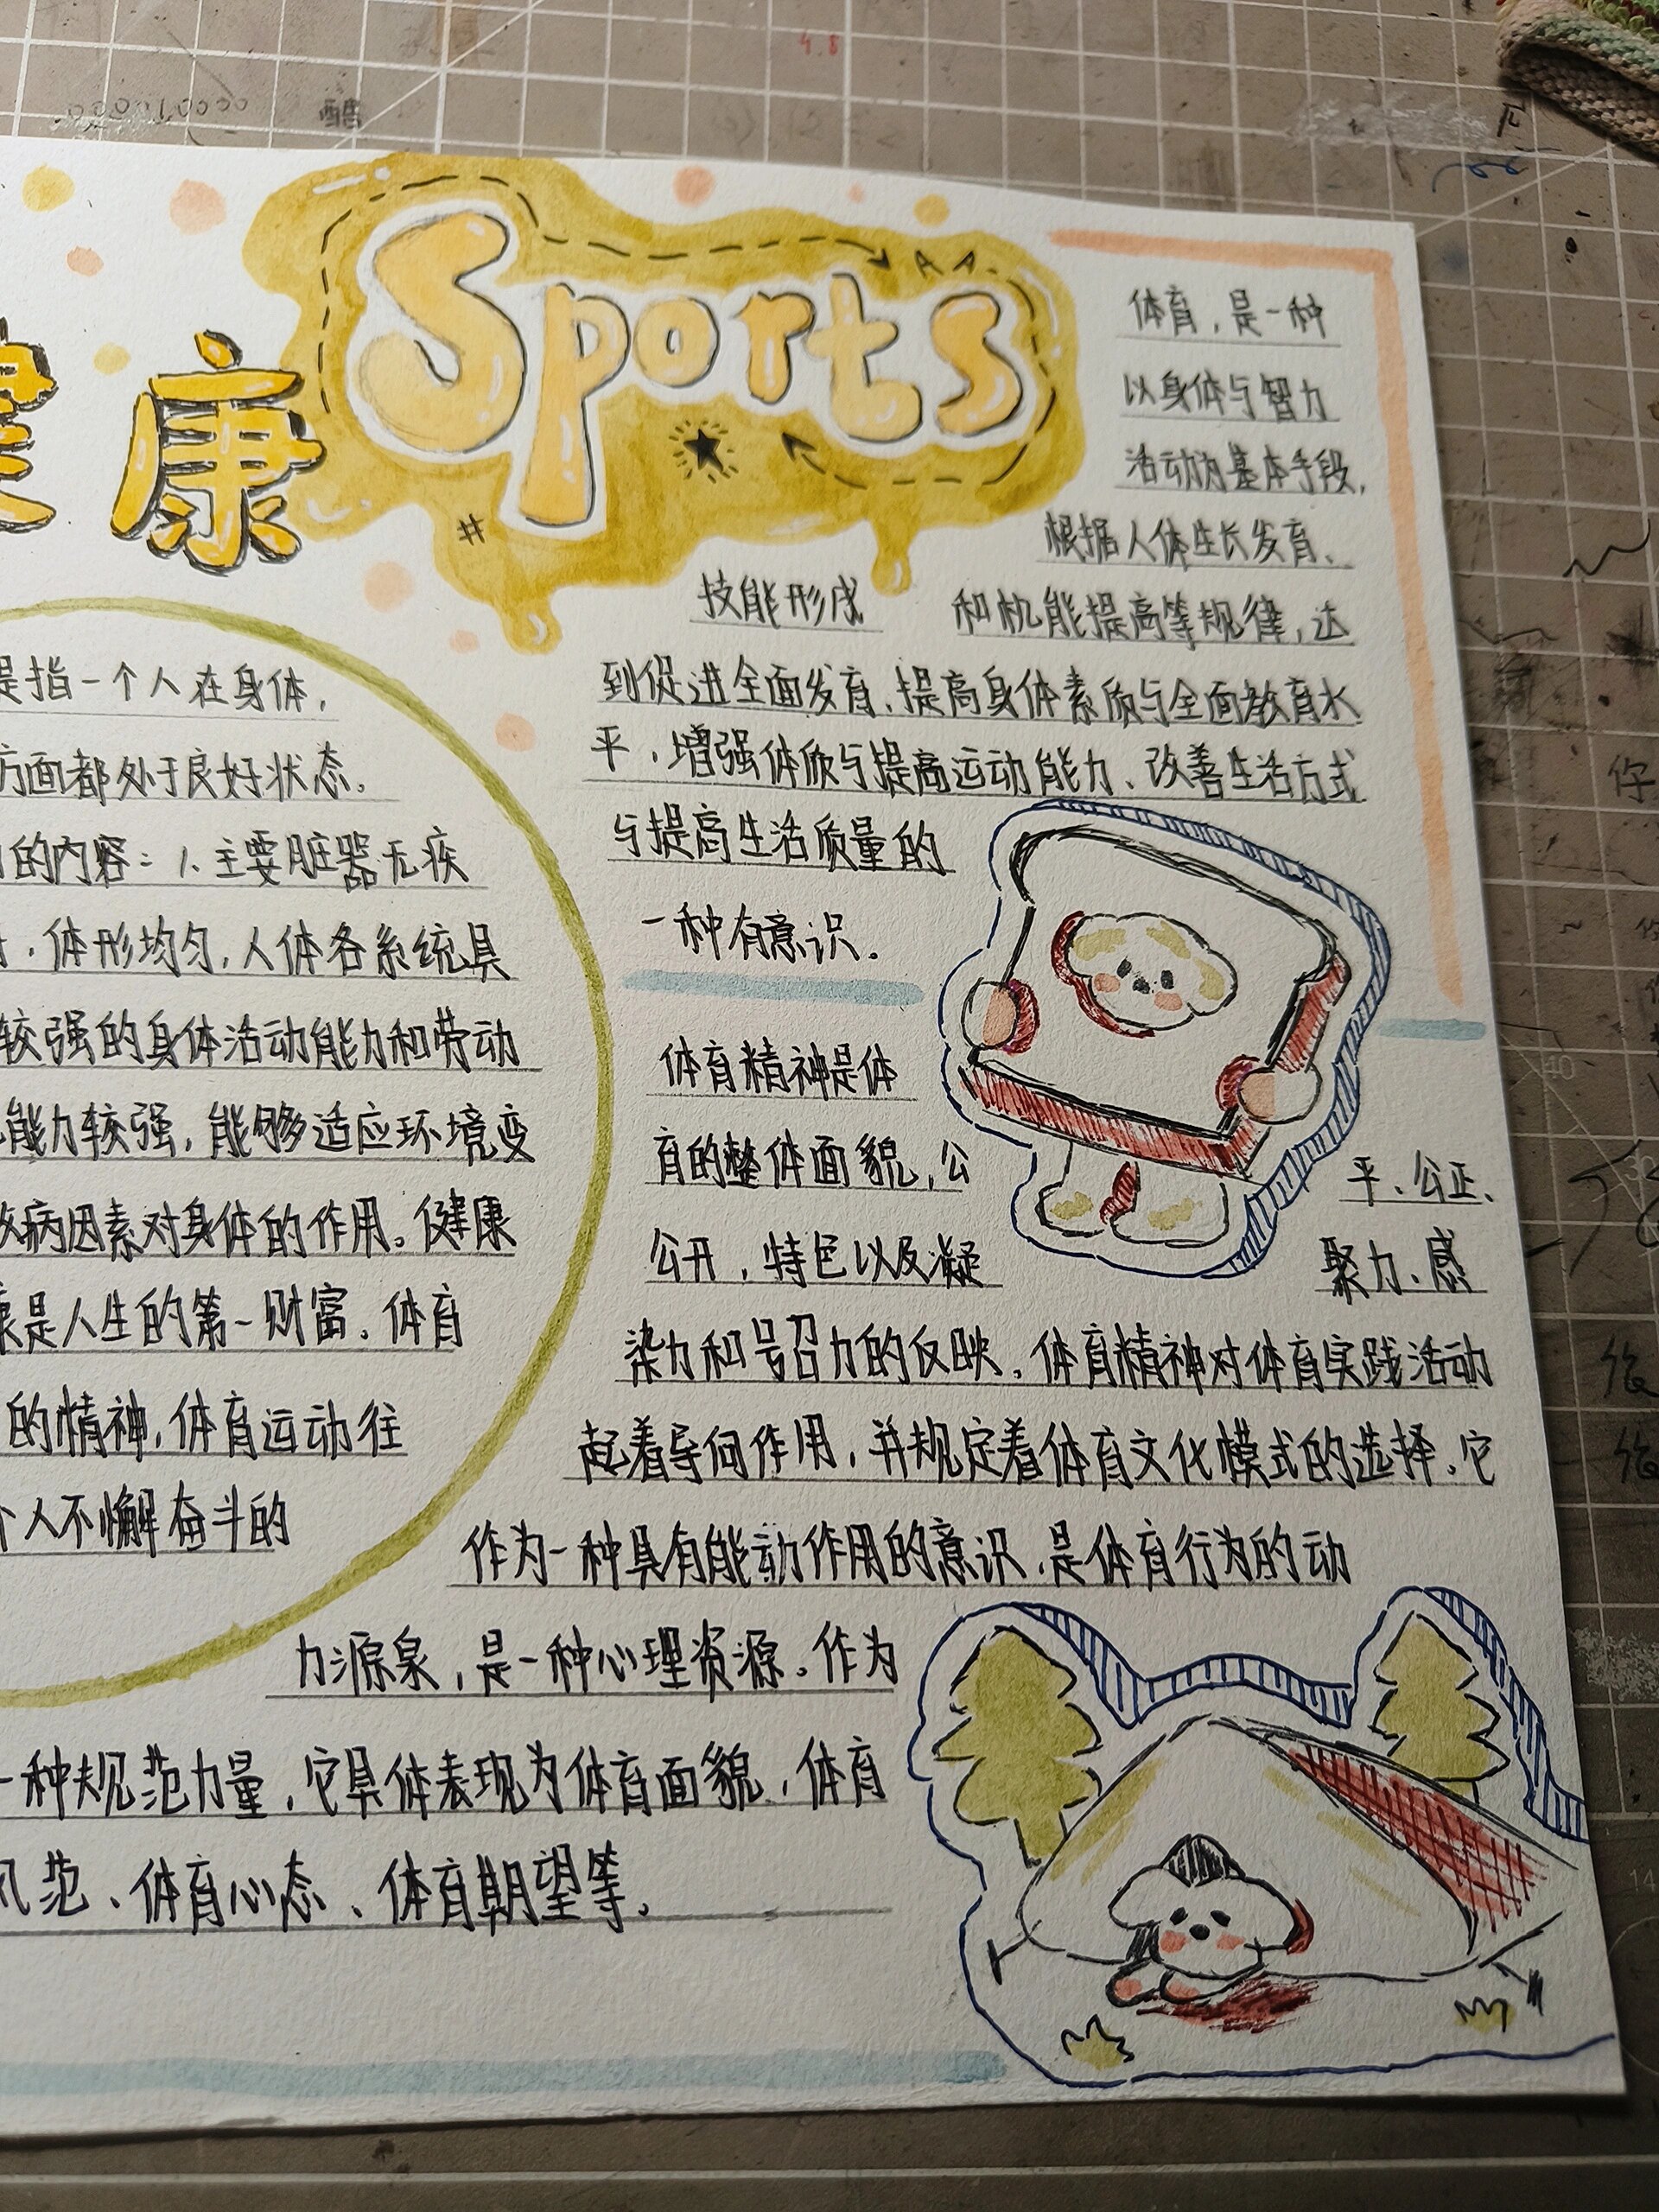 康
Sports
是指一个人在身体,
方面都处于良好状态。
的内容：1.主要脏器无疾
，体形均匀,人体各系统具
较强的身体活动能力和劳动
能力较强，能够适应环境变
致病因素对身体的作用。健康
康是人生的第一财富。体育
的精神，体育运动往
个人不懈奋斗的
体育，是一种
以身体与智力
活动为基本手段，
根据人体生长发育、
技能形成 和机能提高等规律，达
到促进全面发育、提高身体素质与全面教育水
平，增强体质与提高运动能力、改善生活方式
与提高生活质量的
一种有意识。
体育精神是体
育的整体面貌，公 平、公正、
公开，特色以及凝 聚力、感
染力和号召力的反映。体育精神对体育实践活动
起着导向作用，并规定着体育文化模式的选择。它
作为一种具有能动作用的意识，是体育行为的动
力源泉，是一种心理资源。作为
一种规范力量，它具体表现为体育面貌，体育
风范、体育心态、体育期望等。